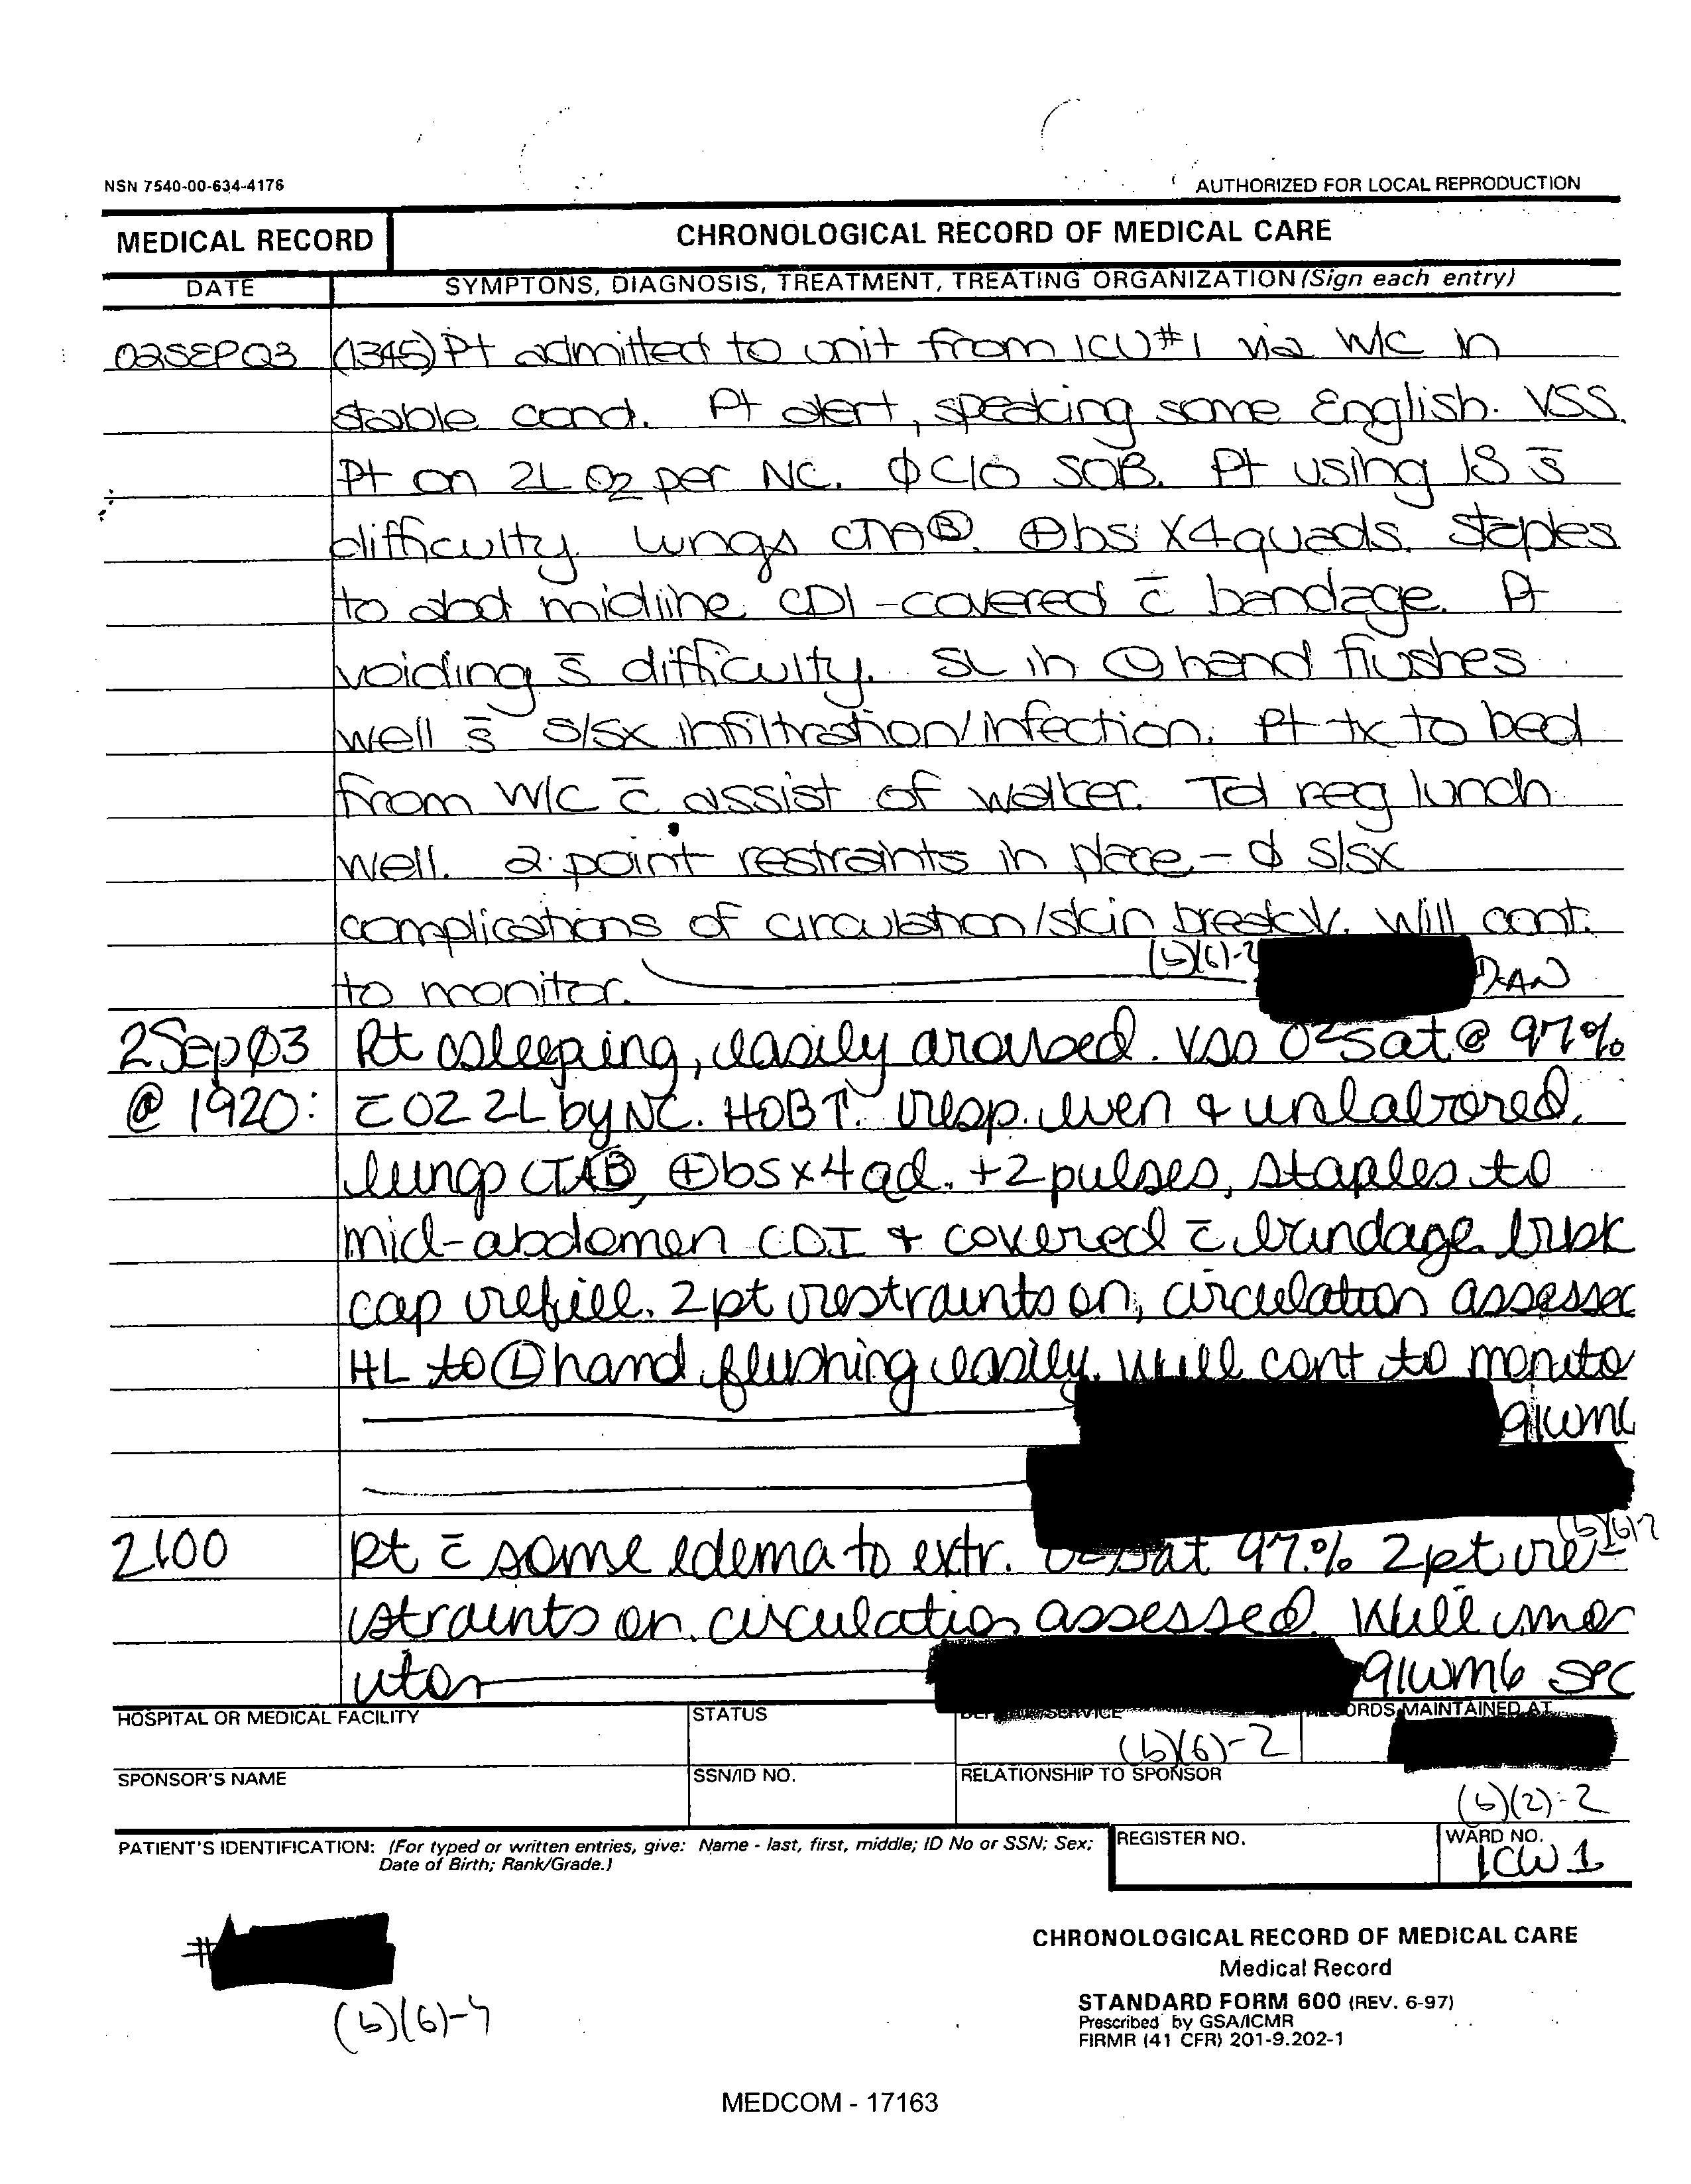 NSN 7540-00-634-4176
AUTHORIZED FOR LOCAL REPRODUCTION
MEDICAL RECORD
CHRONOLOGICAL RECORD OF MEDICAL CARE
DATE
SYMPTONS, DIAGNOSIS, TREATMENT, TREATING ORGANIZATION (Sign each entry)
02SEP03 (1345) Pt admitted to unit from ICU#1 via W/C in
stable cond. Pt alert, speaking some English. VSS.
Pt on 2L O2 per NC. ϕ C/O SOB. Pt using IS s̄
difficulty. Lungs CTA Ⓑ. ⊕ bs X4quads. Staples
to abd midline CDI - covered c̄ bandage. Pt
voiding s̄ difficulty. SL in Ⓛ hand flushes
well s̄ s/sx infiltration/infection. Pt tx to bed
from W/C c̄ assist of walker. Tol reg lunch
well. 2 point restraints in place - ϕ s/sx
complications of circulation/skin breakdwn. Will cont.
to monitor.
(b)(6)-2
2Sep03 Pt asleeping, easily aroused. VSS O2sat @ 97%
@ 1920: c̄ O2 2L by NC. HOB↑. resp. even & unlabored.
lungs CTAB, ⊕ bs x 4qd. +2 pulses, staples to
mid-abdomen CDI & covered c̄ bandage. brisk
cap refill. 2pt restraints on, circulation assessed
HL to Ⓛ hand flushing easily. will cont to monito
91wm6
2100 Pt c̄ some edema to extr. O2sat 97% 2pt re-
(b)(6)-2
straints on. circulation assessed. Will mon
itor 91wm6 SPC
HOSPITAL OR MEDICAL FACILITY
STATUS
DEPART./SERVICE
RECORDS MAINTAINED AT
(b)(6)-2
SPONSOR'S NAME
SSN/ID NO.
RELATIONSHIP TO SPONSOR
(b)(2)-2
PATIENT'S IDENTIFICATION: (For typed or written entries, give: Name - last, first, middle; ID No or SSN; Sex;
Date of Birth; Rank/Grade.)
REGISTER NO.
WARD NO.
ICW 1
#
(b)(6)-4
CHRONOLOGICAL RECORD OF MEDICAL CARE
Medical Record
STANDARD FORM 600 (REV. 6-97)
Prescribed by GSA/ICMR
FIRMR (41 CFR) 201-9.202-1
MEDCOM - 17163